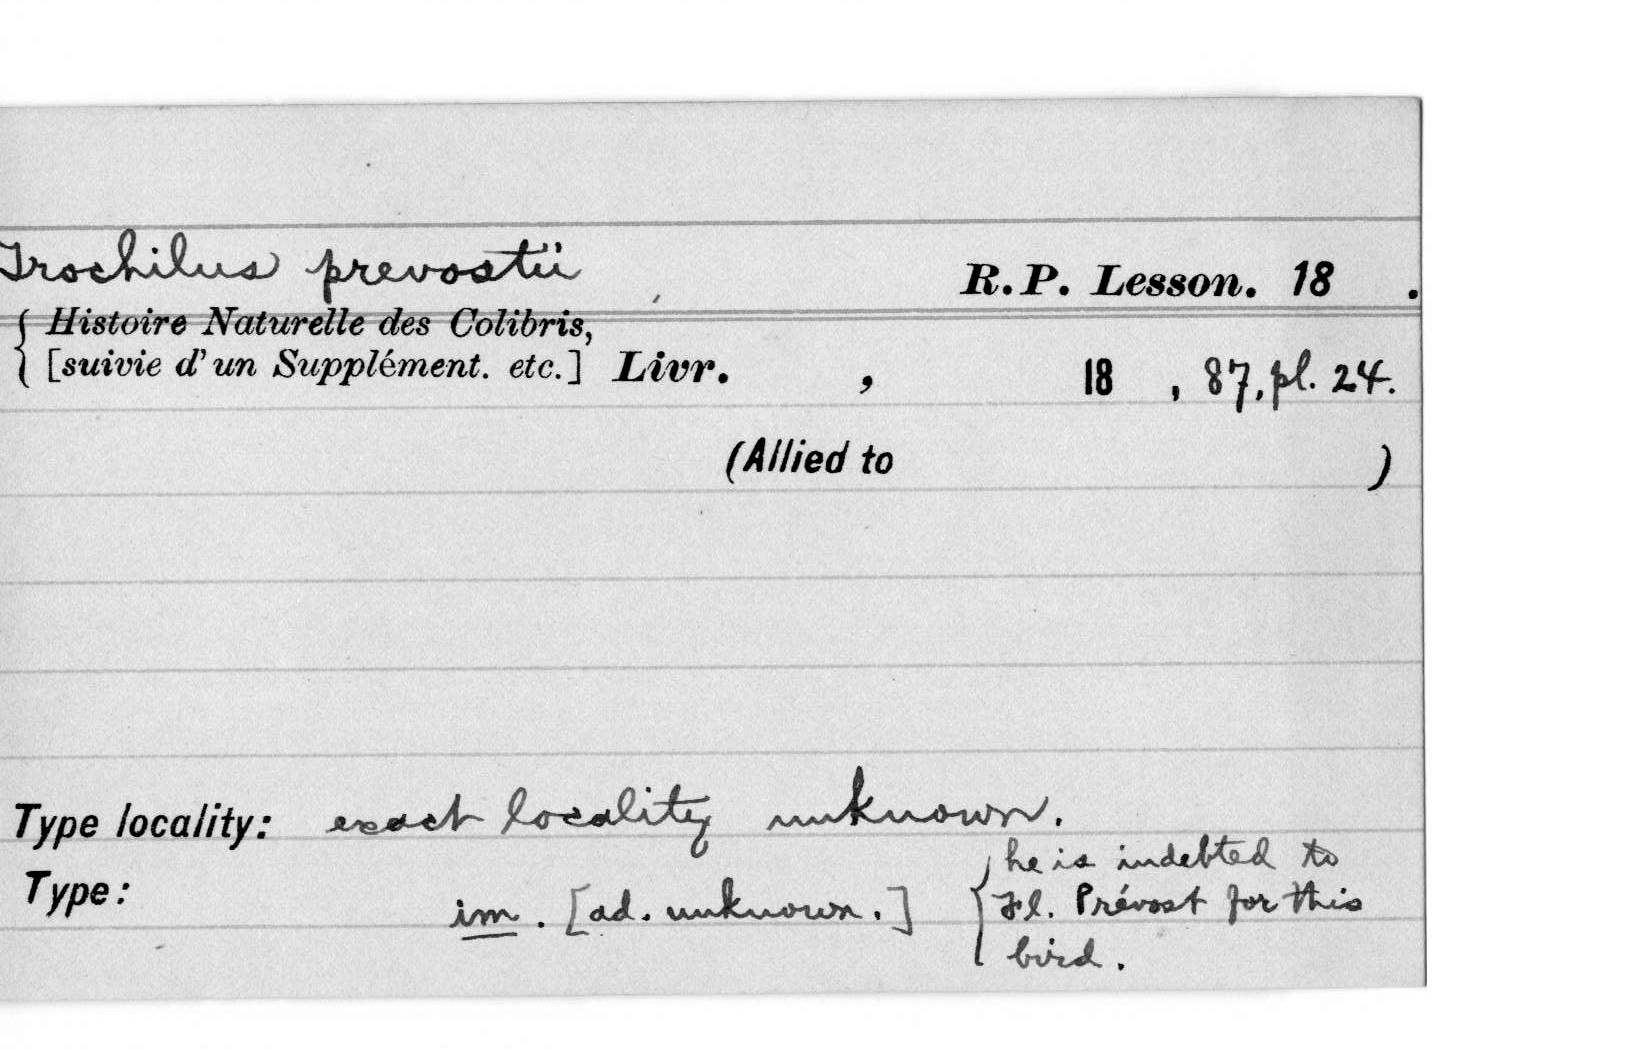 Trochilus prevostii R.P. Lesson. 18 .
{ Histoire Naturelle des Colibris,
[suivie d'un Supplément. etc.] Livr. , 18 , 87, pl. 24.
(Allied to )
Type locality: exact locality unknown.
Type: im. [ad. unknown.] { he is indebted to
Fl. Prévost for this
bird.